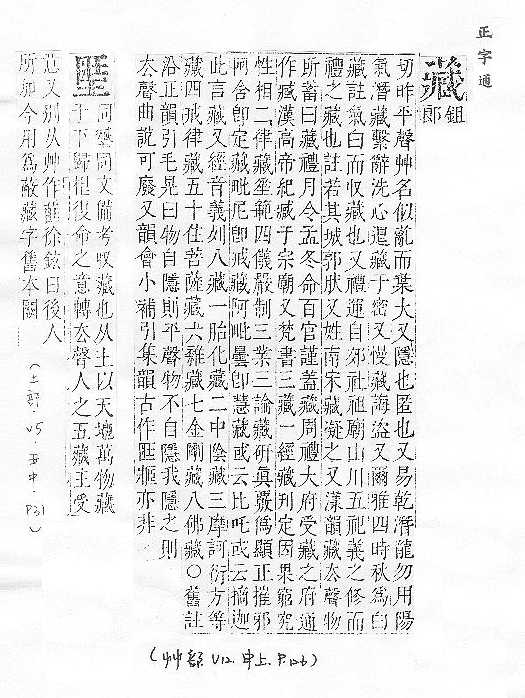 正字通
藏
徂郎
切昨平聲艸名似薍而葉大又隱也匿也又易乾潛龍勿用陽
氣潛藏繫辭洗心退藏于密又慢藏誨盜又爾雅四時秋爲白
藏註氣白而收藏也又禮運自郊社祖廟山川五祀義之修而
禮之藏也註若其城郭狀又姓南宋藏凝之又漾韻藏去聲物
所蓄曰藏禮月令孟冬命百官謹蓋藏周禮大府受藏之府通
作臧漢高帝紀臧于宗廟又梵書三藏一經藏判定因果窮究
性相二律藏垂範四儀嚴制三業三論藏研真覈僞顯正摧邪
阿含卽定藏毗尼卽戒藏阿毗曇卽慧藏或云比吒或云摘迦
此言藏又經音義如八藏一胎化藏二中陰藏三摩訶衍方等
藏四戒律藏五十住菩薩藏六雜藏七金剛藏八佛藏〇舊註
沿正韻引毛晃曰物自隱則平聲物不自隱我隱之則
去聲曲說可廢又韻會小補引集韻古作匨㽵亦非
(艸部 V12.申上.P.126)
同藏同文備考収藏也从土以天地萬物藏
于土歸根復命之意轉去聲人之五藏主受
范又别从艸作徐鉉曰後人
所加今用爲藏字舊本闕
(土部 V5 丑中.P31)